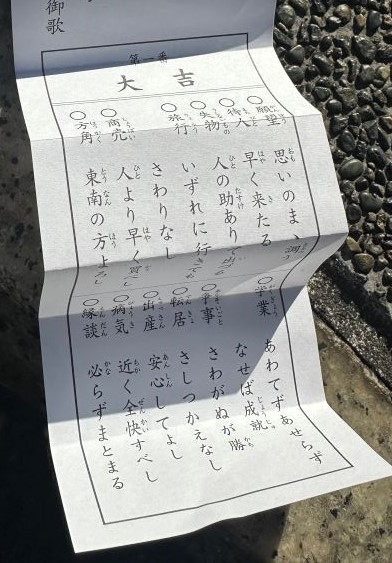 御歌
第一番
大吉
○願望 思いのまゝ調う
○待人 早く来たる
○失物 人の助ありて出づる
○旅行 いずれに行きても
さわりなし
○商売 人より早く買し
○方角 東南の方よろし
○学業 あわてずあせらず
なせば成就
○争事 さわがぬが勝
○転居 さしつかえなし
○出産 安心してよし
○病気 近く全快すべし
○縁談 必らずまとまる